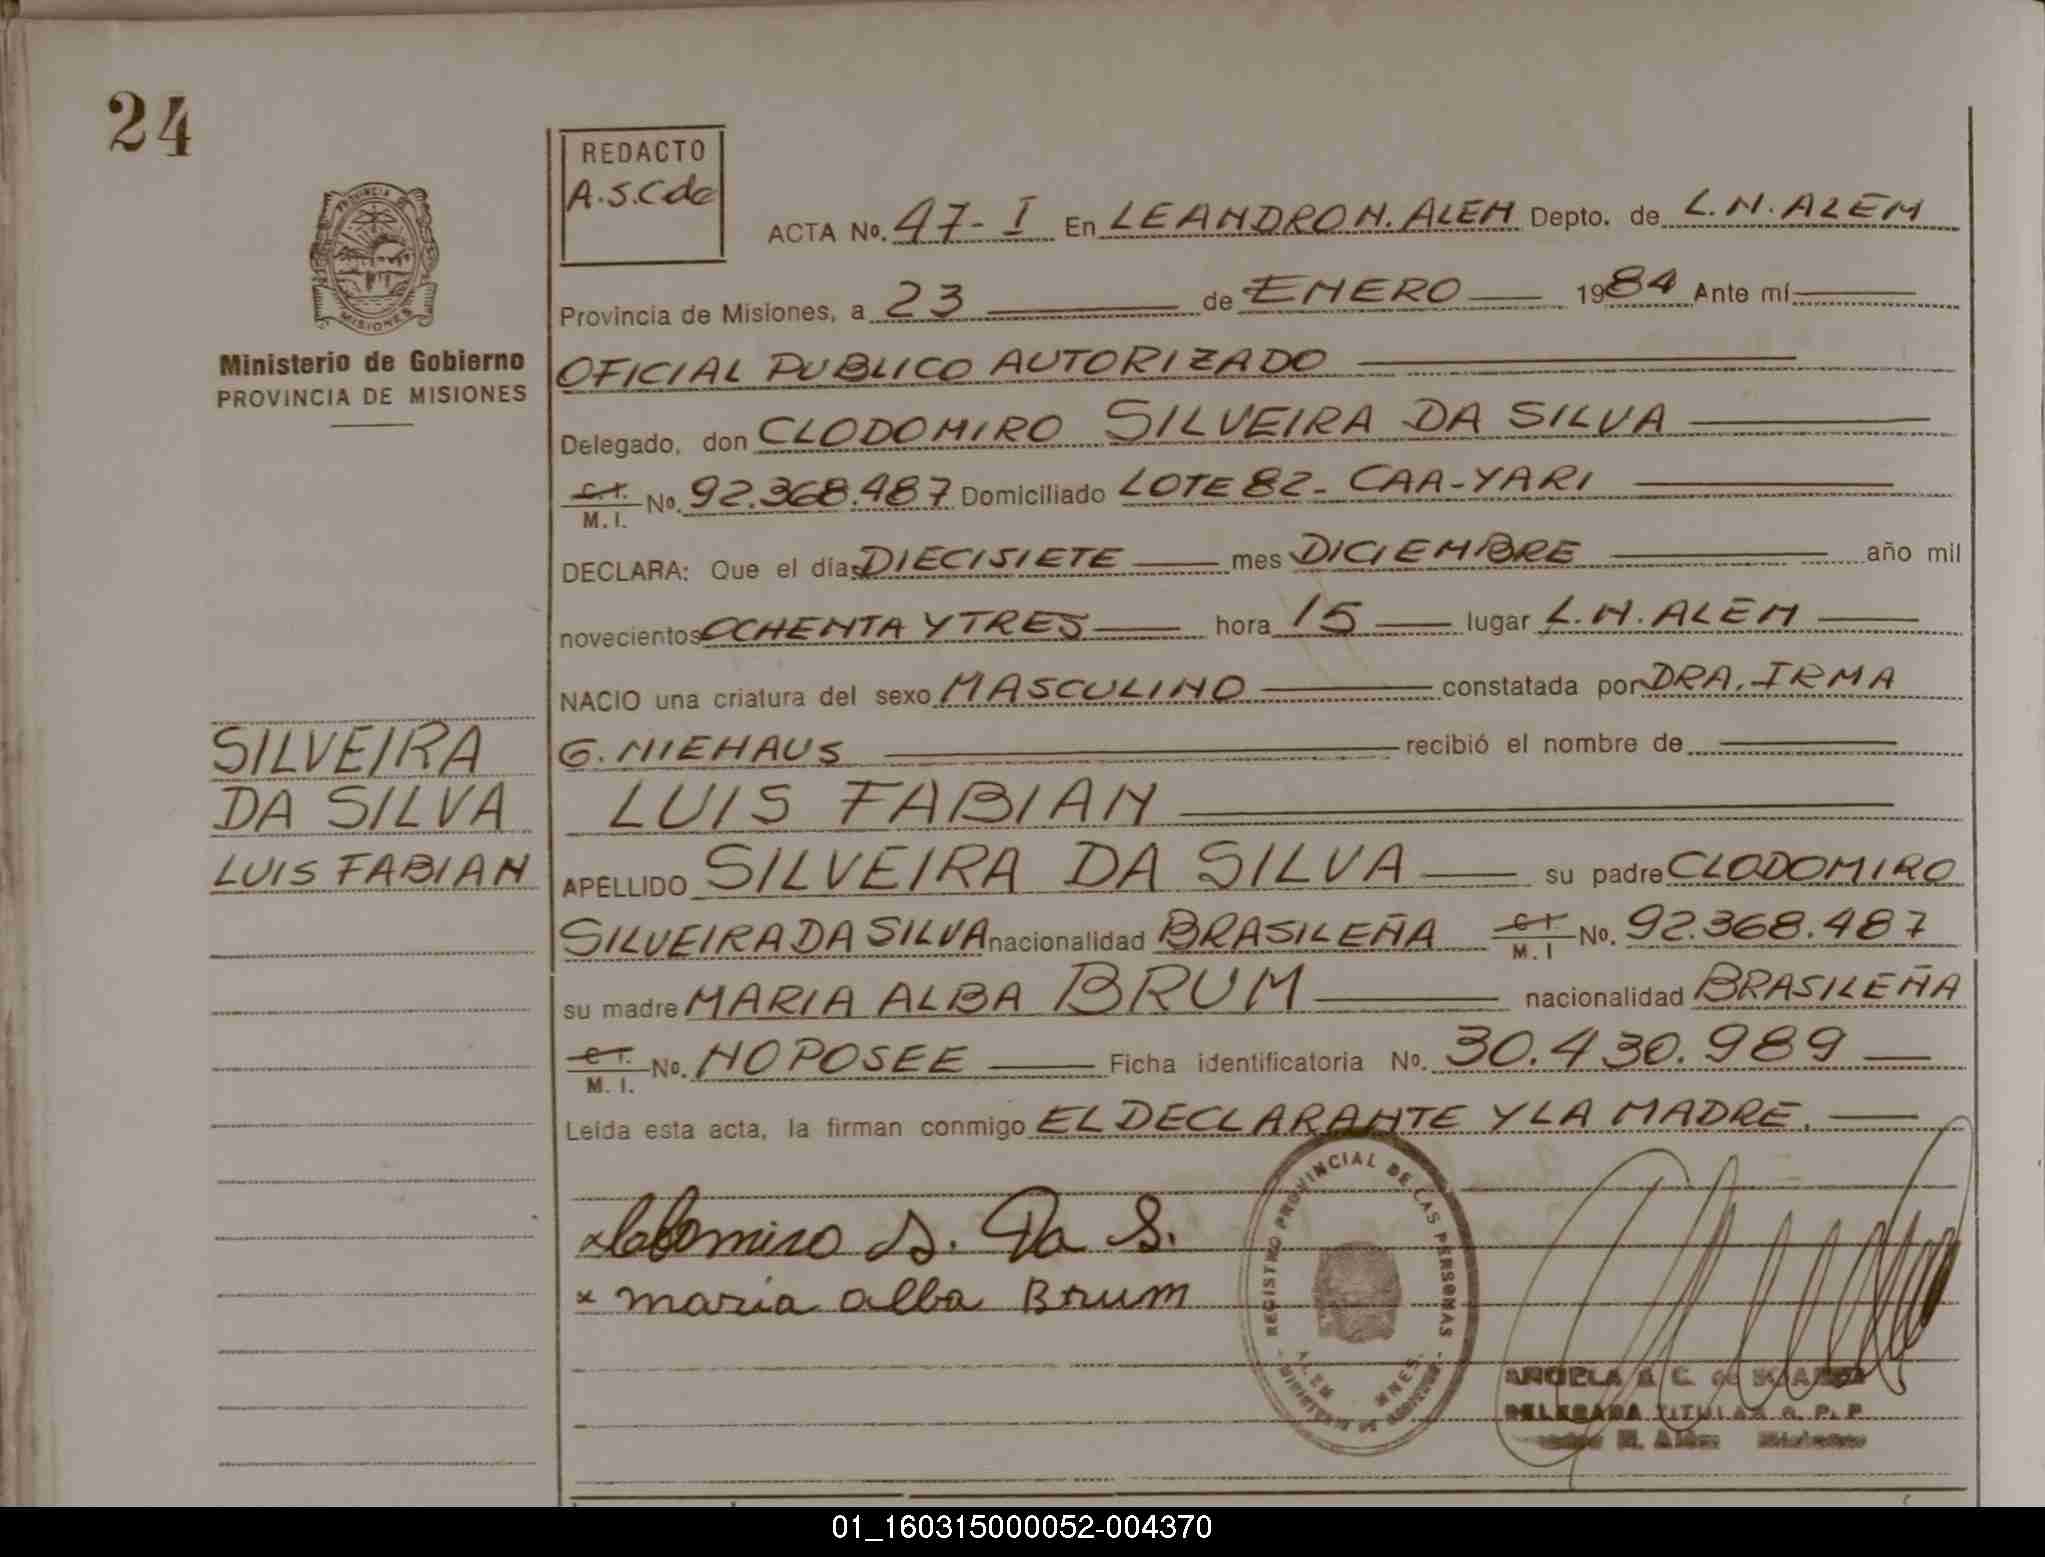 24
REDACTO
A.S.C de
ACTA No. 47-I En LEANDRO N. ALEM Depto. de L.N. ALEM
Provincia de Misiones, a 23 de ENERO 1984 Ante mí
OFICIAL PUBLICO AUTORIZADO
Delegado, don CLODOMIRO SILVEIRA DA SILVA
C.I. M.I. No. 92.368.487 Domiciliado LOTE 82- CAA-YARI
DECLARA: Que el día DIECISIETE mes DICIEMBRE año mil
novecientos OCHENTA Y TRES hora 15 lugar L.N. ALEM
NACIO una criatura del sexo MASCULINO constatada por DRA, IRMA
G. NIEHAUS recibió el nombre de
LUIS FABIAN
APELLIDO SILVEIRA DA SILVA su padre CLODOMIRO
SILVEIRA DA SILVA nacionalidad BRASILEÑA C.I. M.I No. 92.368.487
su madre MARIA ALBA BRUM nacionalidad BRASILEÑA
C.I. M.I. No. NO POSEE Ficha identificatoria No. 30.430.989
Leída esta acta, la firman conmigo EL DECLARANTE Y LA MADRE.
S. Da S.
x maria alba Brum
PROVINCIA DE MISIONES
Ministerio de Gobierno
PROVINCIA DE MISIONES
SILVEIRA
DA SILVA
LUIS FABIAN
REGISTRO PROVINCIAL DE LAS PERSONAS
ALEM MNES.
- MINISTERIO DE GOBIERNO -
DELEGADA TITULAR
01_160315000052-004370